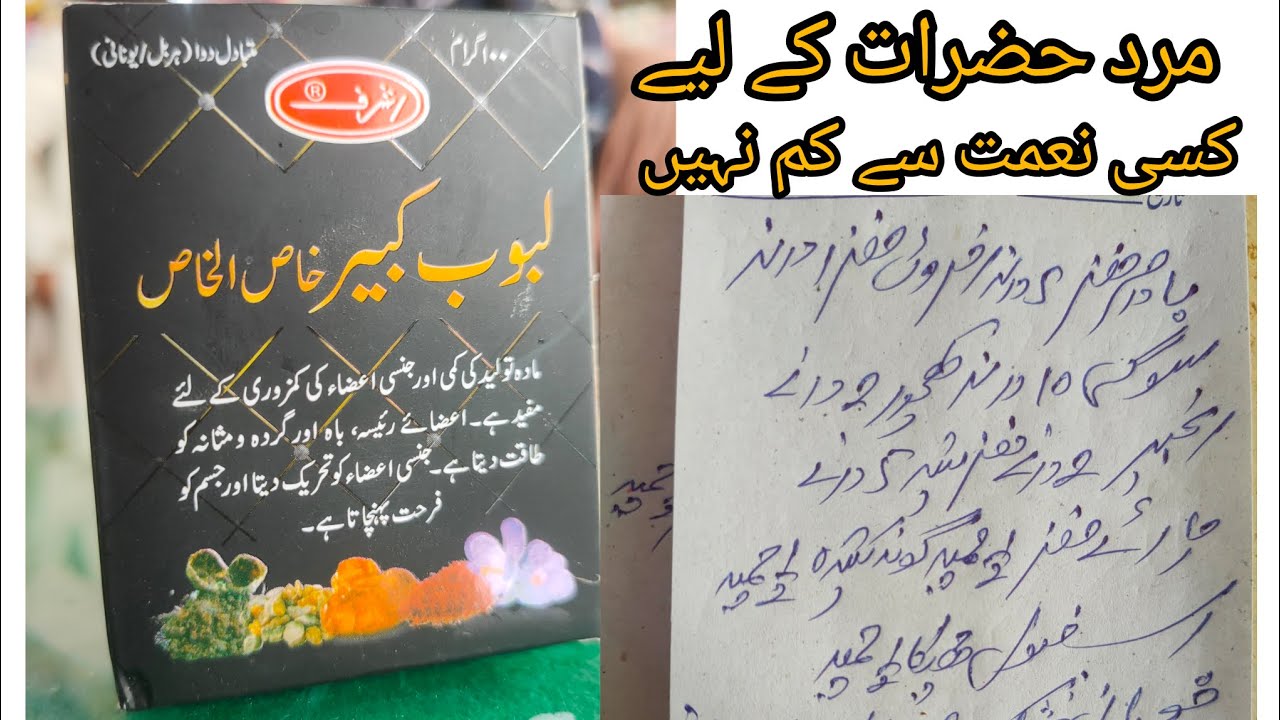 مرد حضرات کے لیے
کسی نعمت سے کم نہیں
۱۰۰ گرام
متبادل دوا (ہربل/یونانی)
اشرف®
لبوب کبیر خاص الخاص
مادہ تولید کی کمی اور جنسی اعضاء کی کمزوری کے لئے
مفید ہے۔ اعضائے رئیسہ، باہ اور گردہ و مثانہ کو
طاقت دیتا ہے۔ جنسی اعضاء کو تحریک دیتا اور جسم کو
فرحت پہنچاتا ہے۔
مغز ۵ دانے اخروٹ مغز ۱ دانہ
سوگی ۱۵ دانہ کھجور ۲ دانے
انجیر ۲ دانے مغز ۵ دانے
مغز ۱ چمچہ گوند کتیرہ ۱ چمچہ
اسپغول چھلکا ۱ چمچہ